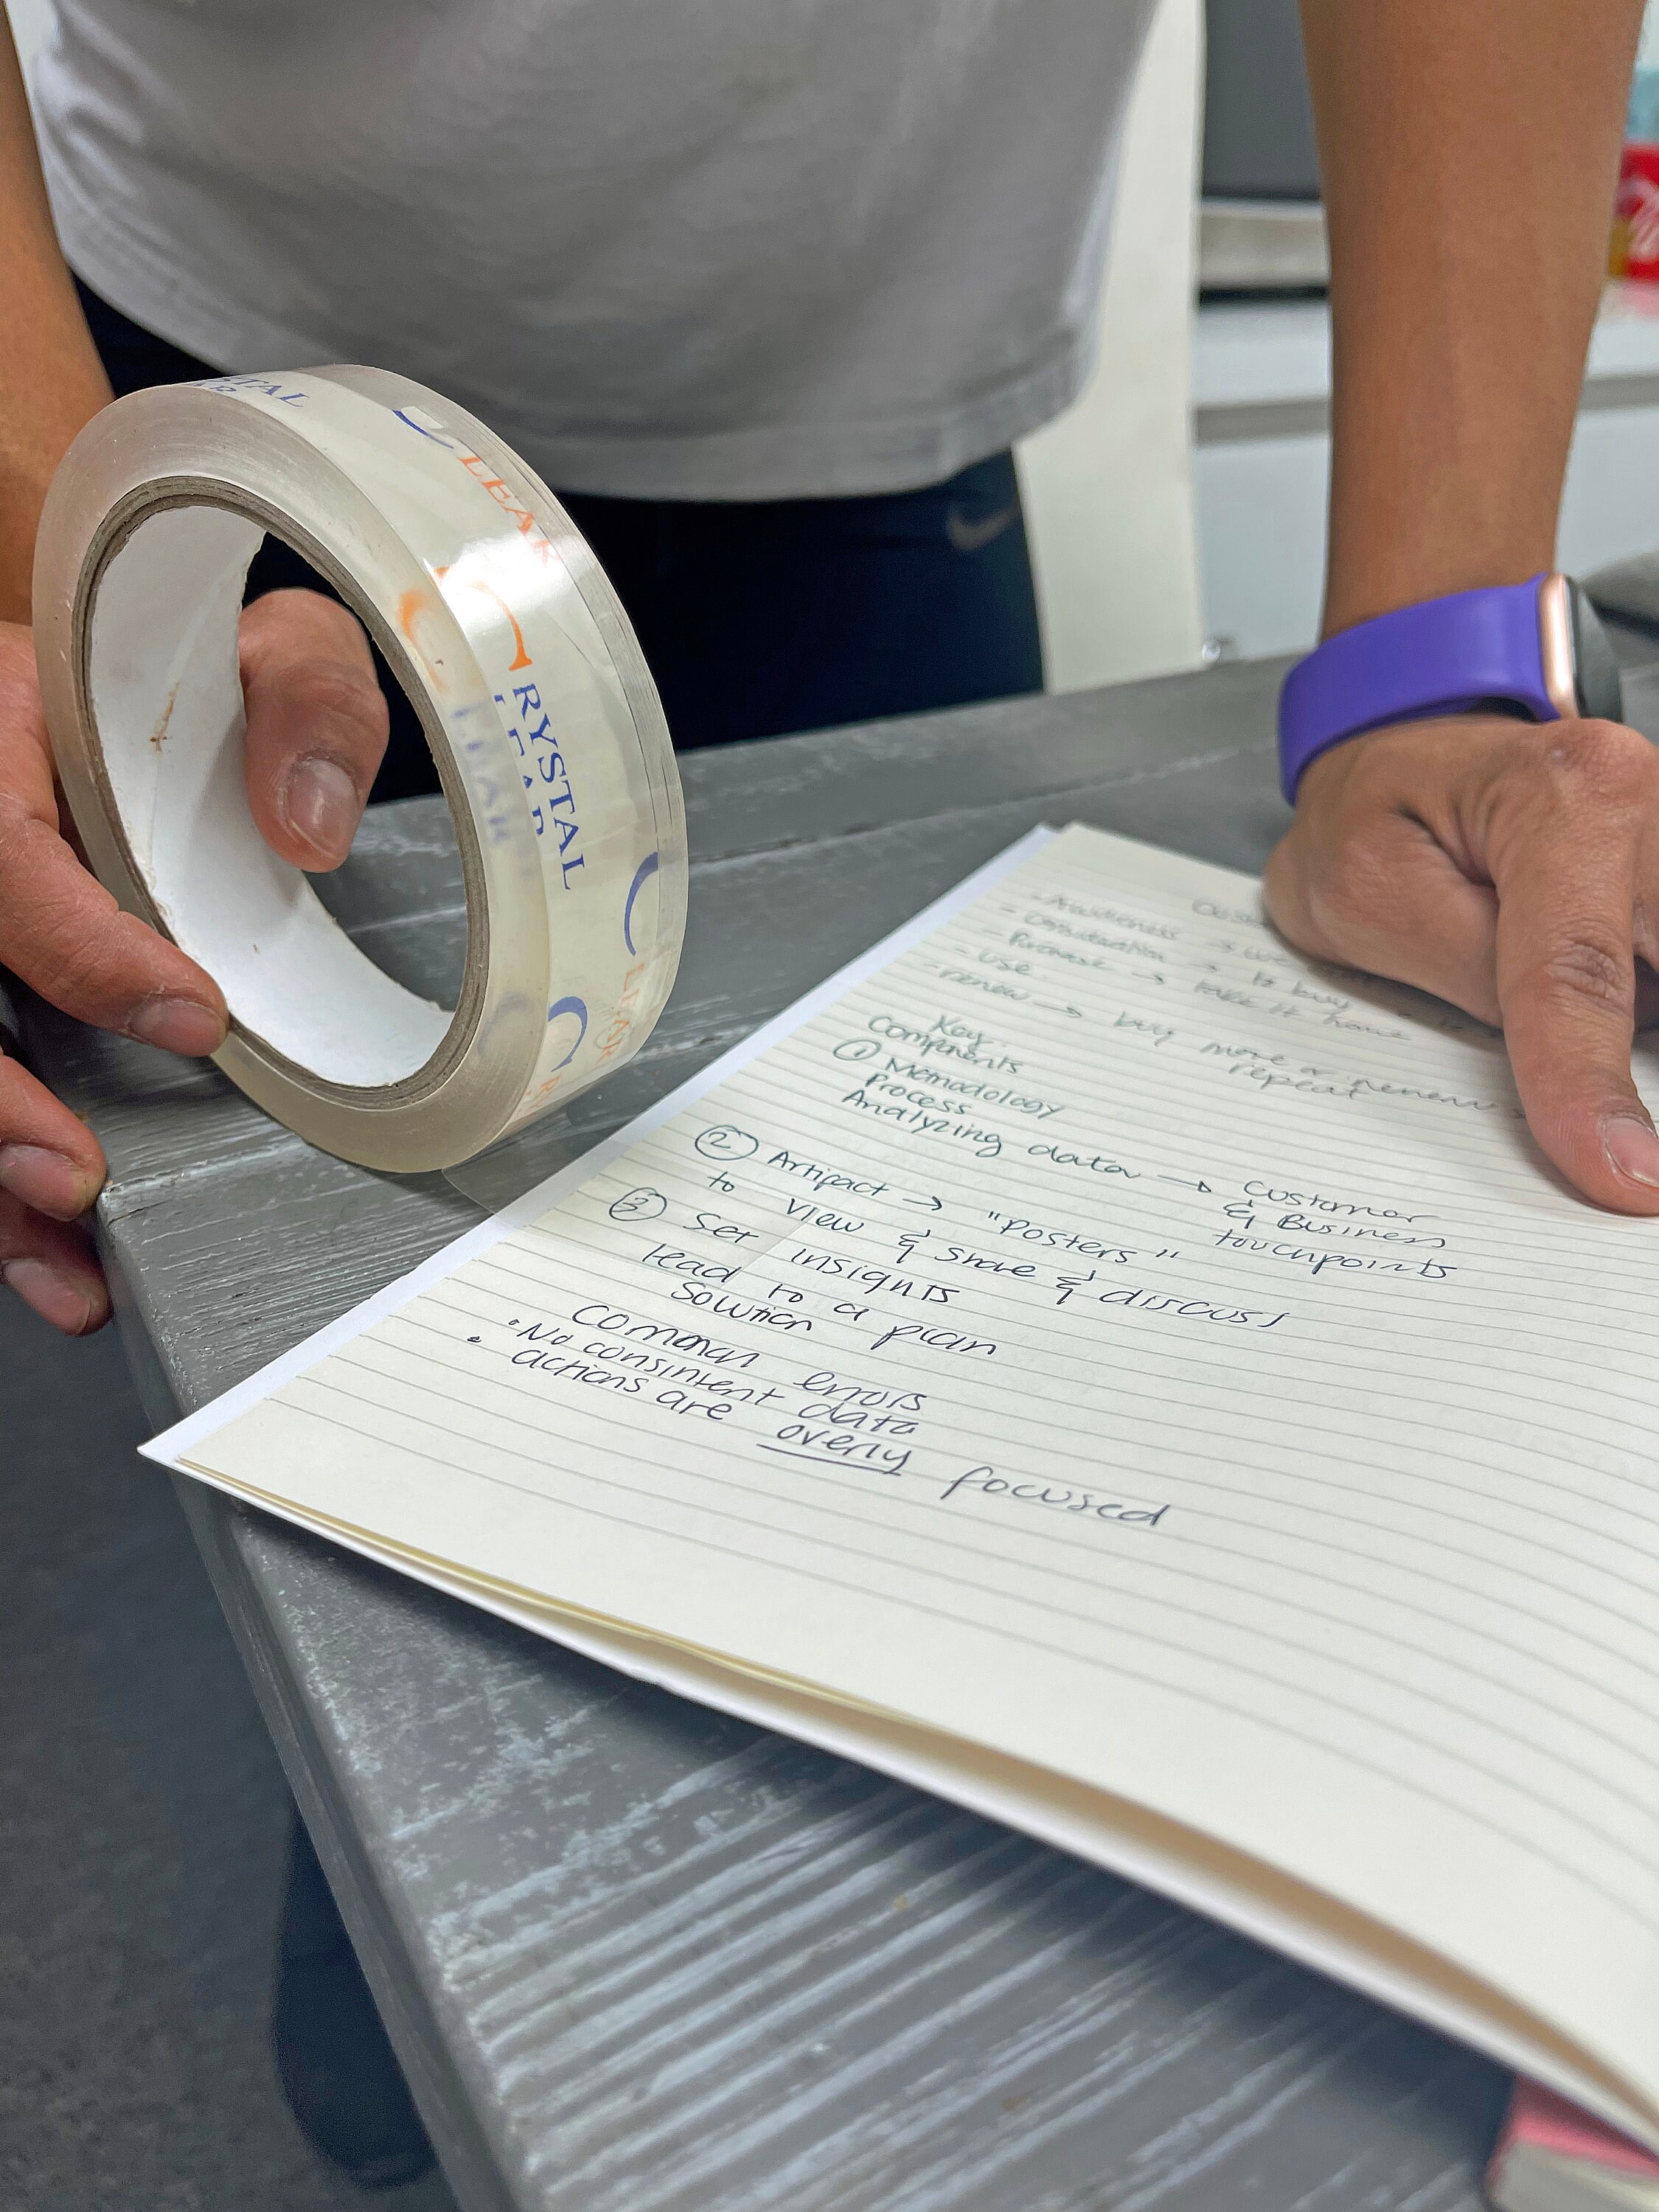 CRYSTAL
CLEAR
CRYSTAL
CLEAR
- Awareness →
- Consideration → to buy
- Purchase → take it home
- use
- renew → buy more or renew
repeat
Key
Components
① Methodology
Process
Analyzing data → customer
& Business
touchpoints
② Artipact → "Posters"
to view & share & discuss
③ Set insights
lead to a plan
Solution
Common errors
• No consintent data
• actions are overly focused